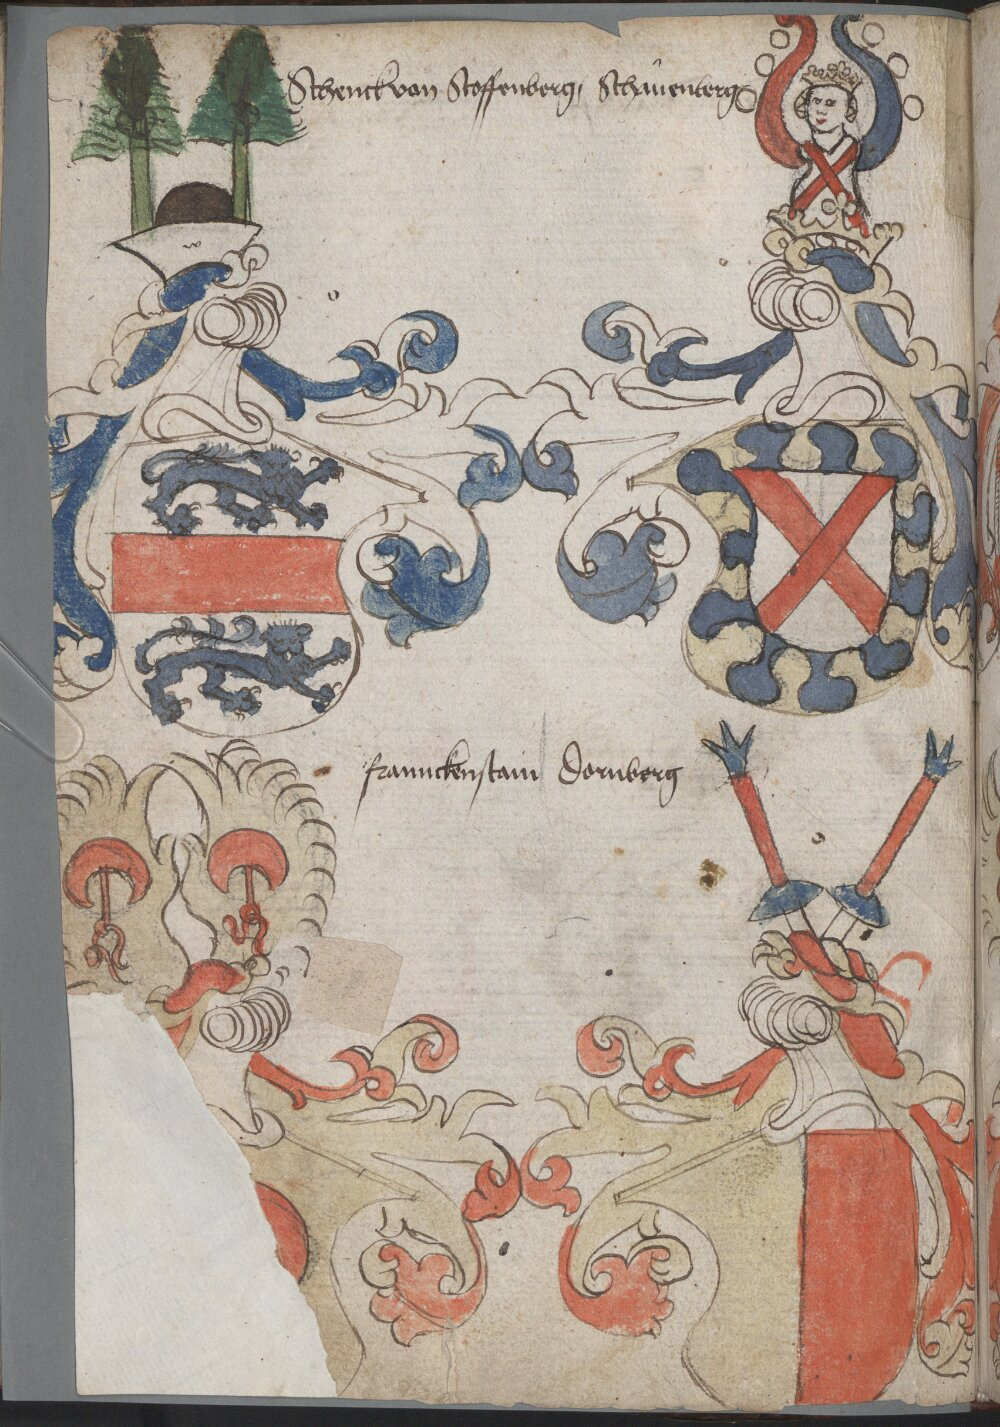 Schenck von Stoffenberg, Schauenberg
franckenstain Dornberg